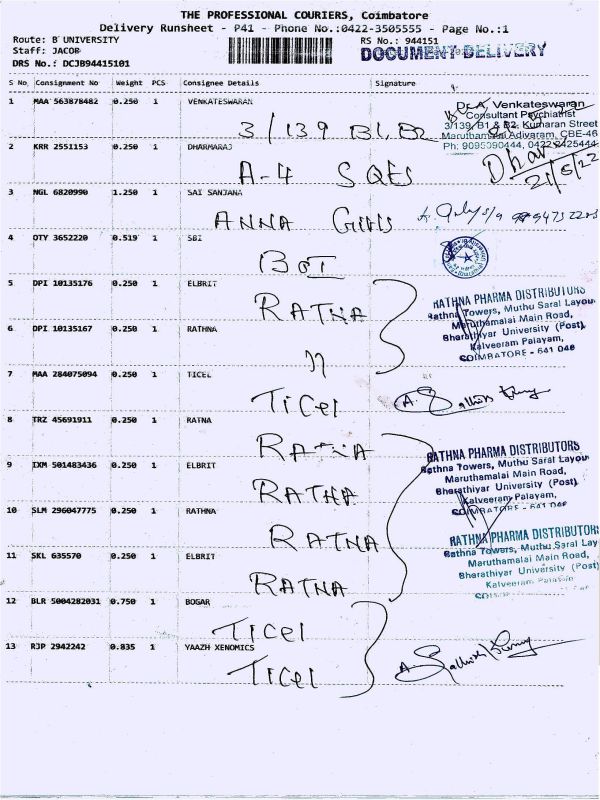 THE PROFESSIONAL COURIERS, Coimbatore
Delivery Runsheet - P41 - Phone No.:0422-3505555 - Page No.:1
Route: B UNIVERSITY RS No.: 944151
Staff: JACOB DOCUMENT DELIVERY
DRS No.: DCJB94415101
S No Consignment No Weight PCS Consignee Details Signature
1 MAA 563878482 0.250 1 VENKATESWARAN
3/139 B1, B2
Dr. A. Venkateswaran
Consultant Psychiatrist
3/139, B1 & B2, Kumaran Street
Maruthamalai Adivaram, CBE-46
Ph: 9095090444, 0422-2425444
2 KRR 2551153 0.250 1 DHARMARAJ
A-4 SQES
Dhar
21/5/22
3 NGL 6820990 1.250 1 SAI SANJANA
ANNA GIRLS
4 OTY 3652220 0.519 1 SBI
BOI
5 DPI 10135176 0.250 1 ELBRIT
RATNA
RATHNA PHARMA DISTRIBUTORS
Rathna Towers, Muthu Saral Layou
Maruthamalai Main Road,
Bharathiyar University (Post)
Kalveeram Palayam,
COIMBATORE - 641 046
6 DPI 10135167 0.250 1 RATHNA
7 MAA 284075094 0.250 1 TICEL
TICEL
8 TRZ 45691911 0.250 1 RATNA
RATNA
RATHNA PHARMA DISTRIBUTORS
Rathna Towers, Muthu Saral Layou
Maruthamalai Main Road,
Bharathiyar University (Post)
Kalveeram Palayam,
COIMBATORE - 641 046
9 IXM 501483436 0.250 1 ELBRIT
RATHA
10 SLM 296047775 0.250 1 RATHNA
RATNA
RATHNA PHARMA DISTRIBUTORS
Rathna Towers, Muthu Saral Lay
Maruthamalai Main Road,
Bharathiyar University (Post)
Kalveeram Palayam
11 SKL 635570 0.250 1 ELBRIT
RATNA
12 BLR 5004282031 0.750 1 BOGAR
TICEL
13 RJP 2942242 0.835 1 YAAZH XENOMICS
TICEL